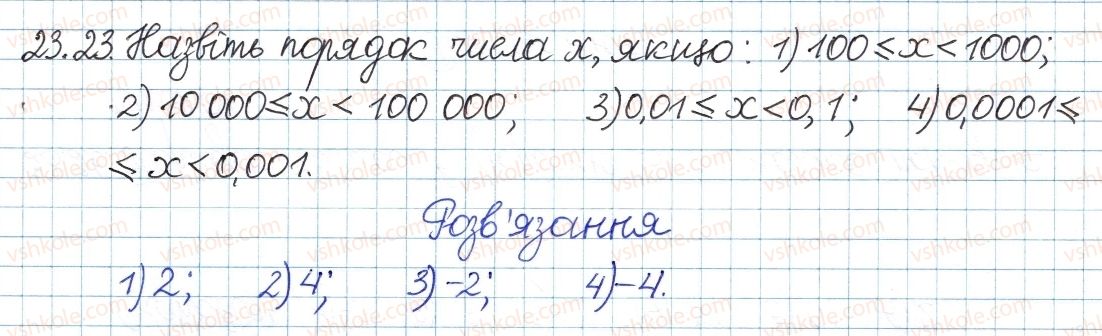 23.23. Назвіть порядок числа x, якщо: 1) 100 ≤ x < 1000;
2) 10 000 ≤ x < 100 000; 3) 0,01 ≤ x < 0,1; 4) 0,0001 ≤
≤ x < 0,001.
Розв'язання
1) 2; 2) 4; 3) -2; 4) -4.